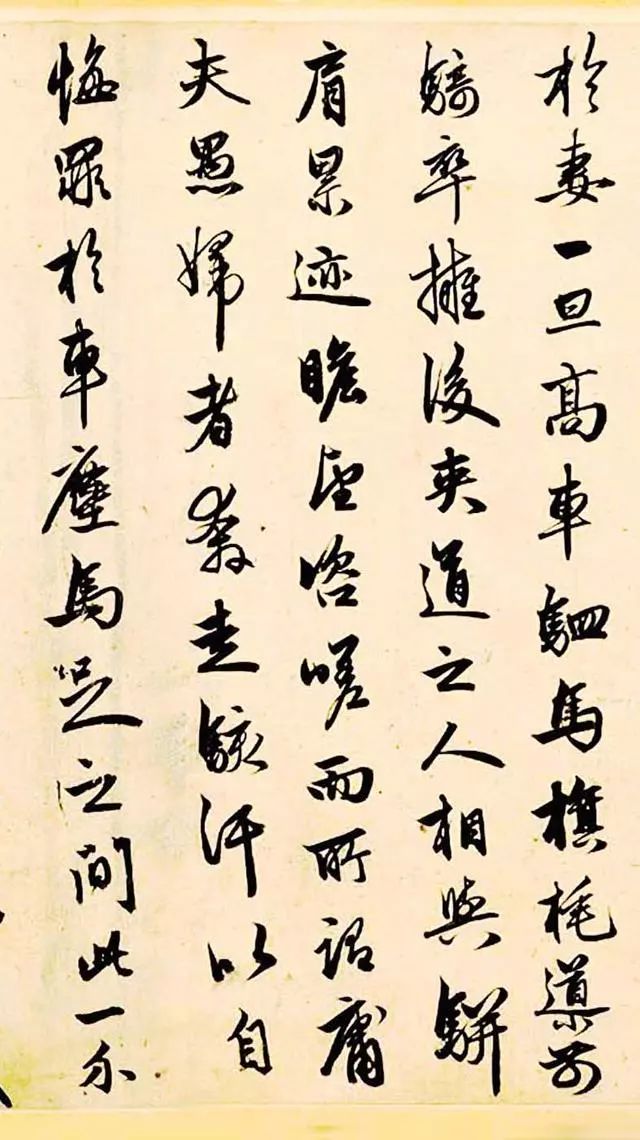 於妻一旦高車駟馬旗旄導前
騎卒擁後夾道之人相與駢
肩累迹瞻望咨嗟而所謂庸
夫愚婦者奔走駭汗以自
悔罪於車塵馬足之間此一介